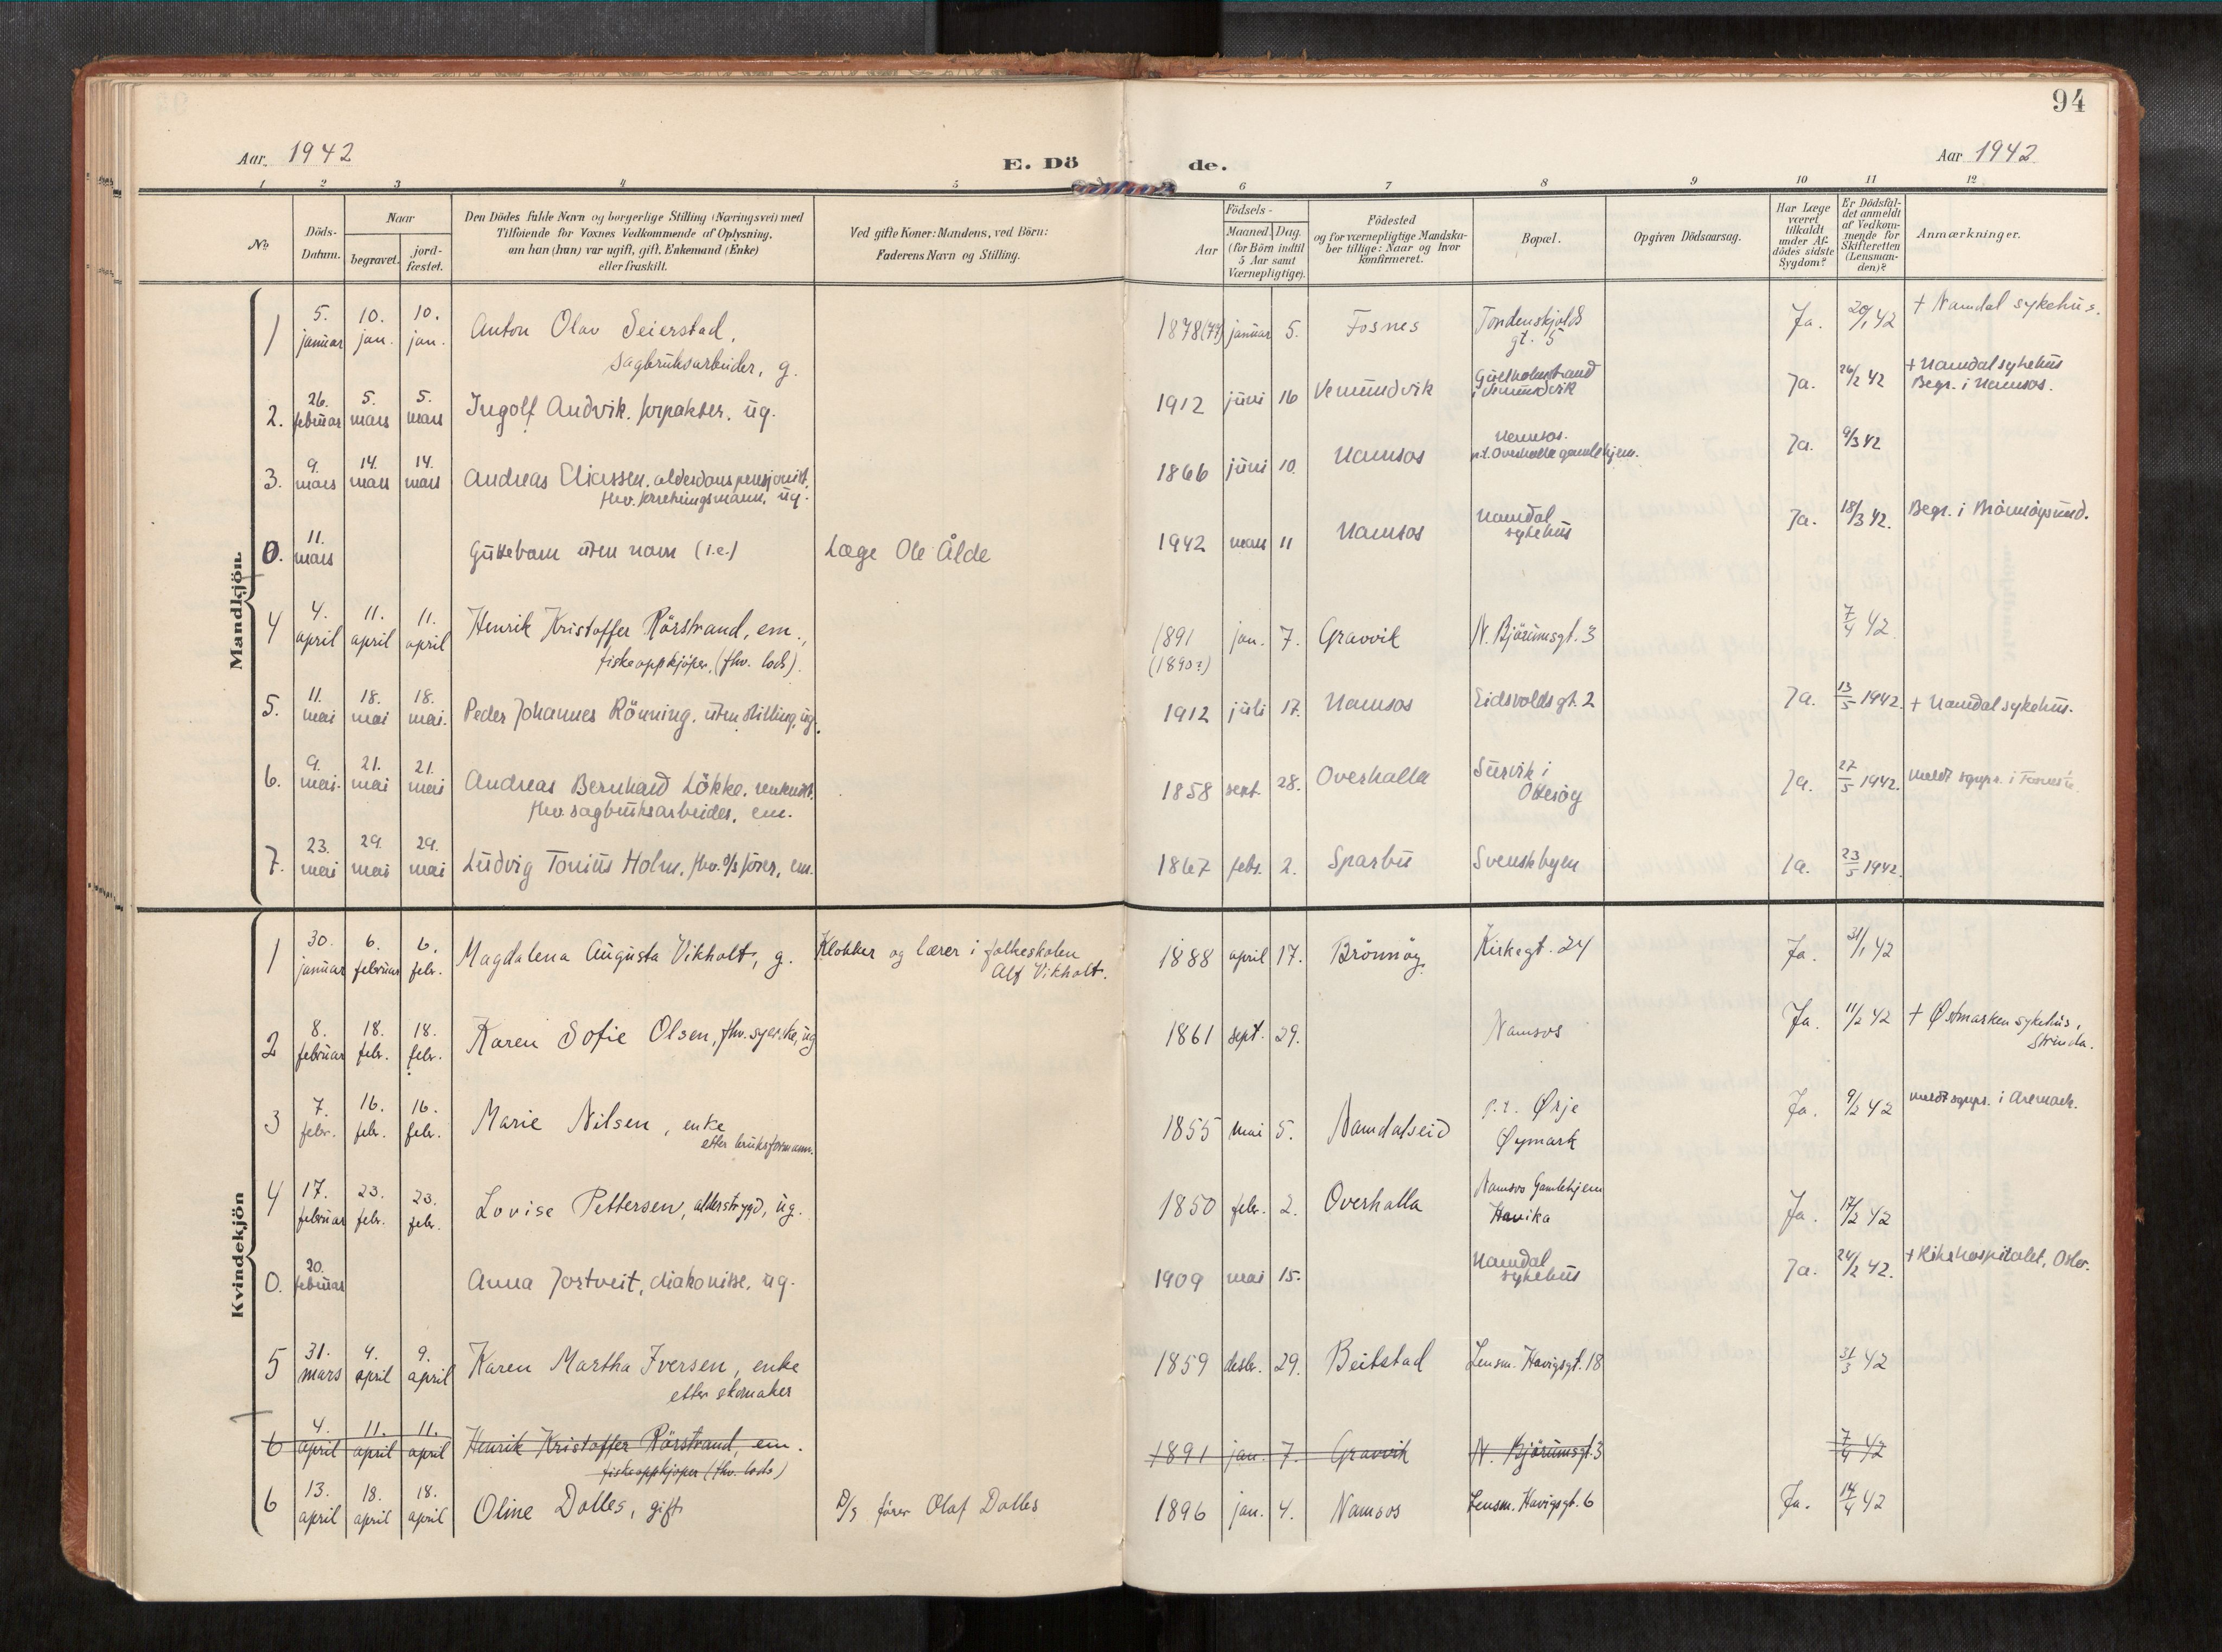 94
Aar 1942
E. Dö de.
Aar 1942
1 2 3 4 5 6 7 8 9 10 11 12
No
Döds-Datum.
Naar
begravet.
jord-fæstet.
Den Dödes fulde Navn og borgerlige Stilling (Næringsvei) med
Tilföiende for Voxnes Vedkommende af Oplysning,
om han (hun) var ugift, gift, Enkemand (Enke)
eller fraskilt.
Ved gifte Koner: Mandens, ved Börn:
Faderens Navn og Stilling.
Födsels-
Aar
Maaned. Dag.
(for Börn indtil
5 Aar samt
Værnepligtige).
Födested
og for værnepligtige Mandska-
ber tillige: Naar og hvor
konfirmeret.
Bopæl.
Opgiven Dödsaarsag.
Har Læge
været
tilkaldt
under Af-
dödes sidste
Sygdom?
Er Dödsfal-
det anmeldt
af Vedkom-
mende for
Skifteretten
(Lensman-
den)?
Anmærkninger.
Mandkjön.
1 5. januar 10. jan. 10. jan. Anton Olav Seierstad, 1878(77) januar 5. Fosnes Tordenskjolds Ja. 20/1 42 + Namdal sykehus.
sagbruksarbeider, g. gt. 5
2. 26. februar 5. mars 5. mars Ingolf Andvik. forpakter, ug. 1912 juni 16 Vemundvik i Vemundvik Ja. 26/2 42 + Namdal sykehus
Begr. i Namsos.
3. 9. mars 14. mars 14. mars Andreas Eliassen, alderdomspensjonist, 1866 juni 10. Namsos Namsos. Ja. 9/3 42
fhv. forretningsmann, ug. p.t. Overhalla gamlehjem.
0. 11. mars Guttebarn uten navn (i.e.) Læge Ole Ålde 1942 mars 11 Namsos Namdal sykehus Ja. 18/3 42. Begr. i Brönnöysund.
4 4. april 11. april 11. april Henrik Kristoffer Rörstrand, em., 1891 jan. 7. Gravvik N. Björumsgt. 3 7/4 42
fiskeoppkjöper, (fhv. lods). (1890?)
5. 11. mai 18. mai 18. mai. Peder Johannes Rönning, uten stilling, ug. 1912 juli 17. Namsos Eidsvoldsgt. 2 Ja. 13/5 1942. + Namdal sykehus.
6. 9. mai. 21. mai 21. mai Andreas Bernhard Lökke, 1858 sept. 28. Overhalla Survik i Ja. 27/5 1942.
fhv. sagbruksarbeider, em. Otterøy
7. 23. mai 29. mai 29. mai Ludvig Tonius Holm, fhv. d/s förer, em. 1867 febr. 2. Sparbu Svenskbyen Ja. 23/5 1942.
Kvindekjön
1 30. januar 6. februar 6. febr. Magdalena Augusta Vikholt, g. Klokker og lærer i folkeskolen 1888 april 17. Brönnöy Kirkegt. 24 Ja. 31/1 42
Alf Vikholt.
2 8. februar 18. febr. 18. febr. Karen Sofie Olsen, fhv. syerske, ug 1861 sept. 29. Namsos Ja. 11/2 42 + Østmarken sykehus,
Strinda.
3 7. febr. 16. febr. 16. febr. Marie Nilsen, enke 1855 mai 5. Namdalseid p.t. Ørje Ja. 9/2 42 meldt sgnpr. i Aremark.
efter bruksformann. Øymark
4 17. februar 23. febr. 23. febr. Lovise Pettersen, alderstrygd, ug. 1850 febr. 2. Overhalla Namsos Gamlehjem Ja. 17/2 42
Havika
0. 20. februar Anna Jostveit, diakonisse, ug. 1909 mai 15. Namdal sykehus Ja. 24/2 42. + Rikshospitalet, Oslo.
5 31. mars 9. april 9. april Karen Martha Iversen, enke 1859 desbr. 29. Beitstad Lensm. Havigsgt. 18 31/3 42
efter skomaker
6 4. april 11. april 11. april Henrik Kristoffer Rörstrand, em. 1891 jan. 7. Gravvik N. Björumsgt. 3 7/4 42
fiskeoppkjöper (fhv. lods)
6 13. april 18. april 18. april Oline Dolles, gift D/s förer Olaf Dolles 1896 jan. 4. Namsos Lensm. Havigsgt. 6 Ja. 14/4 42